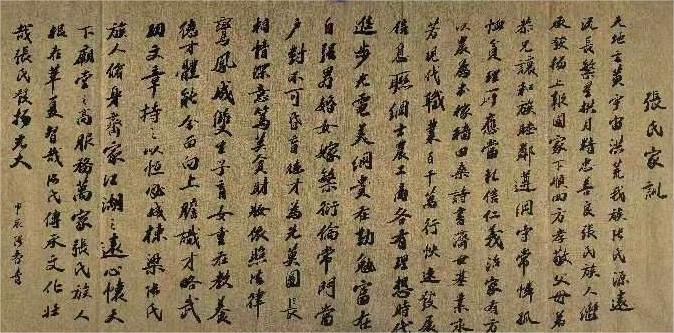 張氏家訓
天地玄黃宇宙洪荒我族張氏源遠
流長繁星拱月精忠善良張氏族人繼
承發揚上報國家下順四方孝敬父母弟
恭兄讓和族睦鄰遵綱守常憐孤
恤貧理所應當禮信仁義治家有方
以農為本稼穡田桑詩書濟世基業永
若現代職業百千萬行快速發展
信息聯網士農工商各有理想時代
進步光電美綱貴在勤勉富在
自強男婚女嫁繁衍倫常門當
戶對不可盲自德才為先莫圖長
相情深意篤莫貪財妝依照法律
鸞鳳成雙生子育女重在教養
德才體能全面向上膽識才略武
功文章持之以恒必成棟梁張氏
族人修身齊家江湖之遠心懷天
下廟堂之高服務萬家張氏族人
根在華夏智哉張氏傳承文化壯
哉張氏發揚光大
甲辰